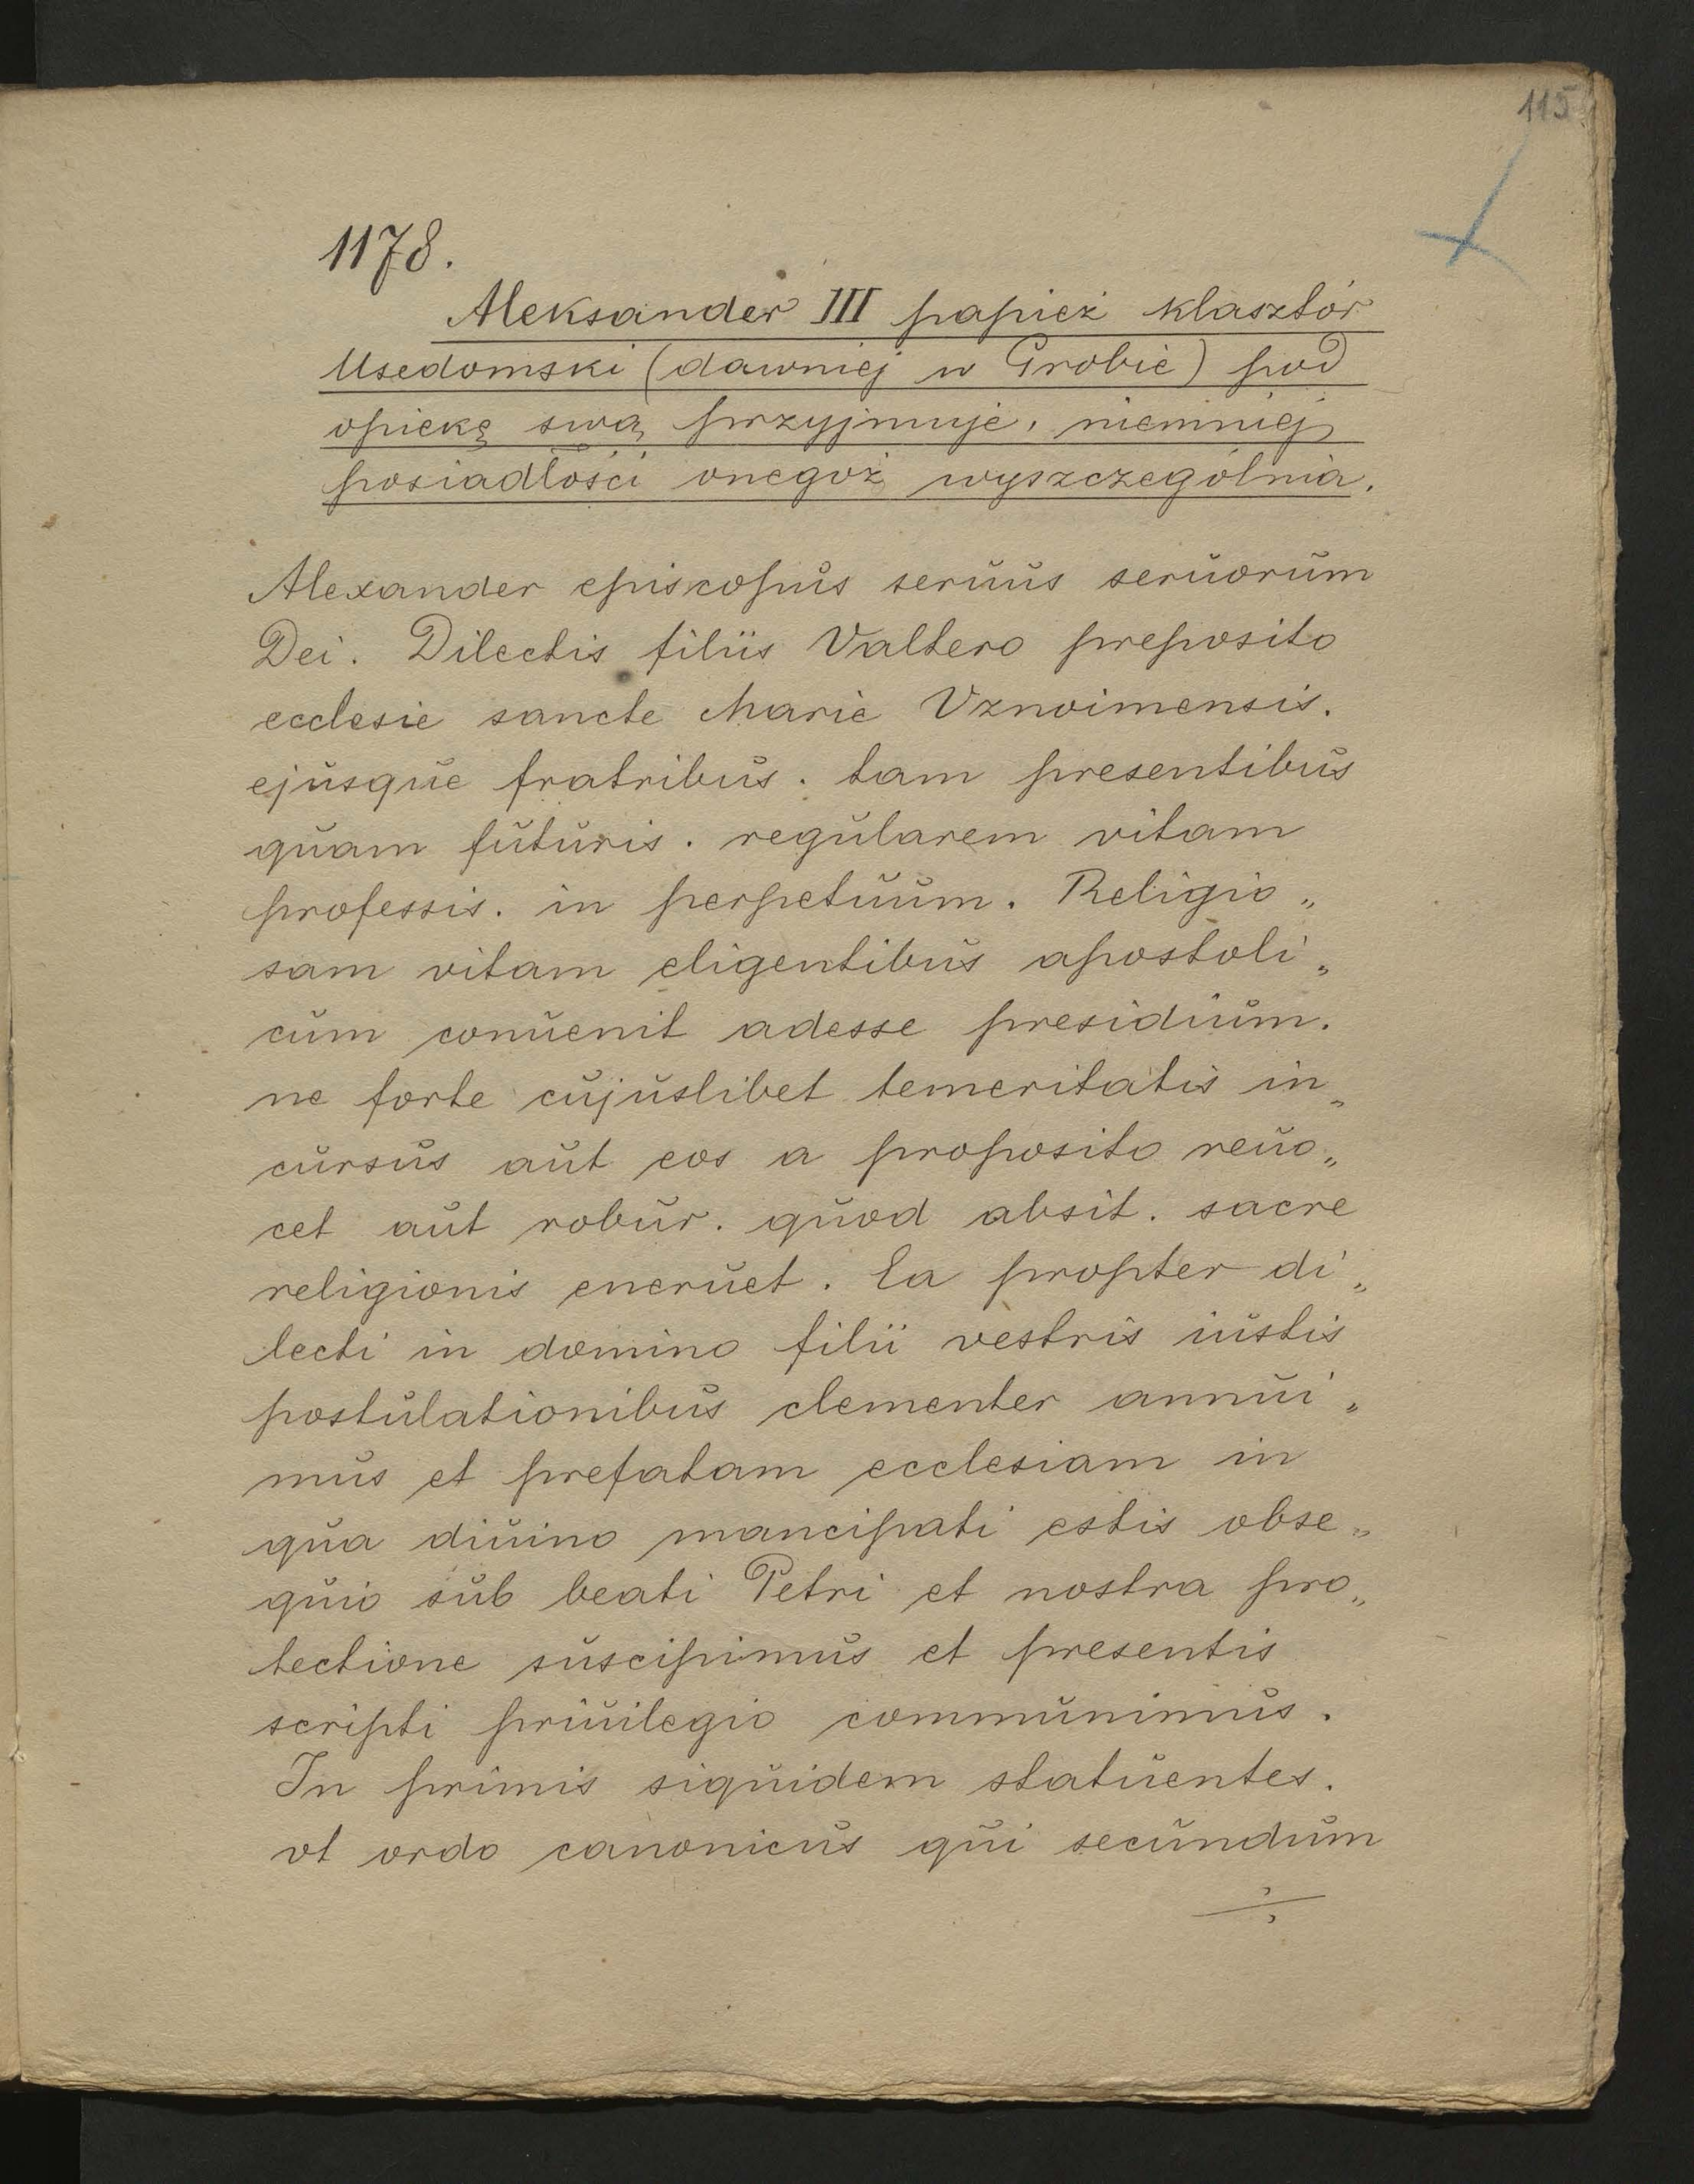 115
1178.
Aleksander III papież klasztór
Usedomski (dawniej w Grobie) pod
opiekę swą przyjmuje, niemniej
posiadłości onegoż wyszczególnia.
Alexander episcopus seruus seruorum
Dei. Dilectis filiis Valtero preposito
ecclesie sancte Marie Vznoimensis.
ejusque fratribus. tam presentibus
quam futuris. regularem vitam
professis. in perpetuum. Religio„
sam vitam eligentibus apostoli„
cum conuenit adesse presidium.
ne forte cujuslibet temeritatis in„
cursus aut eos a proposito reuo„
cet aut robur. quod absit. sacre
religionis eneruet. Ea propter di„
lecti in domino filii vestris iustis
postulationibus clementer annui„
mus et prefatam ecclesiam in
qua diuino mancipati estis obse„
quio sub beati Petri et nostra pro„
tectione suscipimus et presentis
scripti priuilegio communimus.
In primis siquidem statuentes.
vt ordo canonicus qui secundum